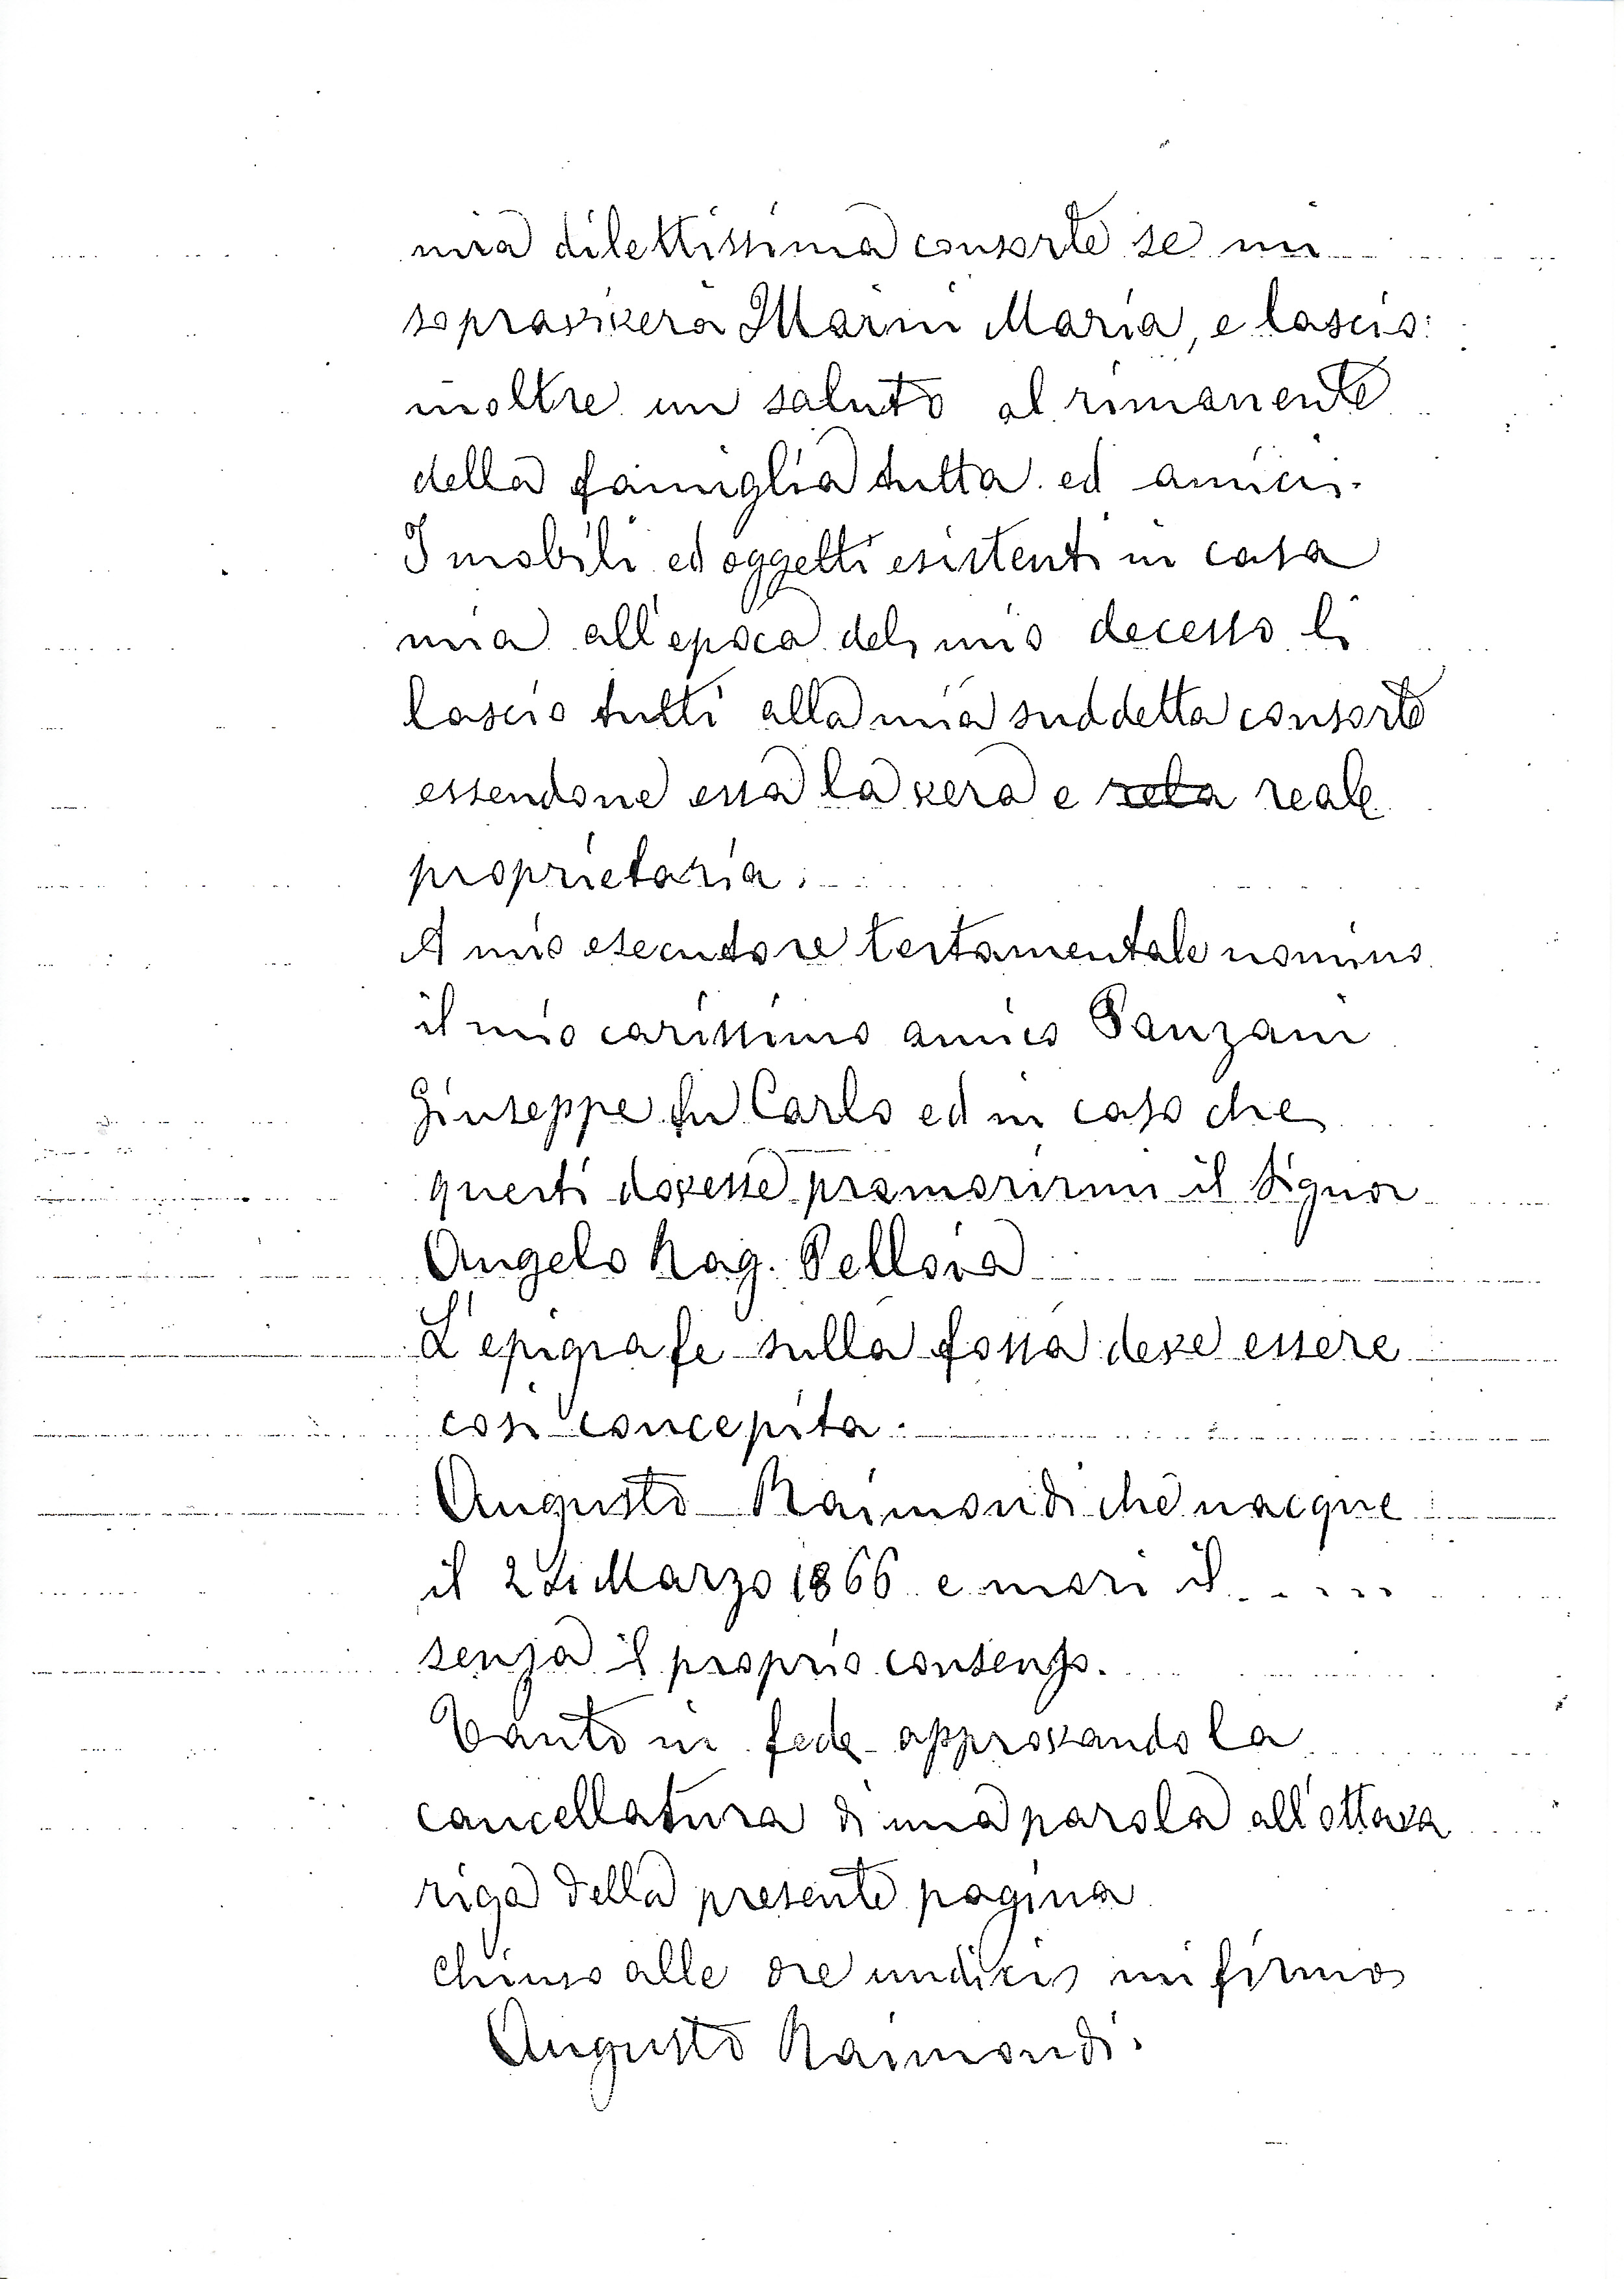 mia dilettissima consorte se mi
sopravivera Marini Maria, e lascio
inoltre un saluto al rimanente
della famiglia tutta ed amici.
I mobili ed oggetti esistenti in casa
mia all'epoca del mio decesso li
lascio tutti alla mia suddetta consorte
essendone essa la vera e reale
proprietaria.
A mio esecutore testamentale nomino
il mio carissimo amico Panzani
Giuseppe fu Carlo ed in caso che
questi dovesse premorirmi il Signor
Angelo Rag. Pellovia
L'epigrafe sulla fossa deve essere
cosi concepita.
Augusto Raimondi che nacque
il 2 di Marzo 1866 e mori il .....
senza il proprio consenso.
Tanto in fede approvando la
cancellatura di una parola all'ottava
riga della presente pagina
chiuso alle ore undici mi firmo
Augusto Raimondi.